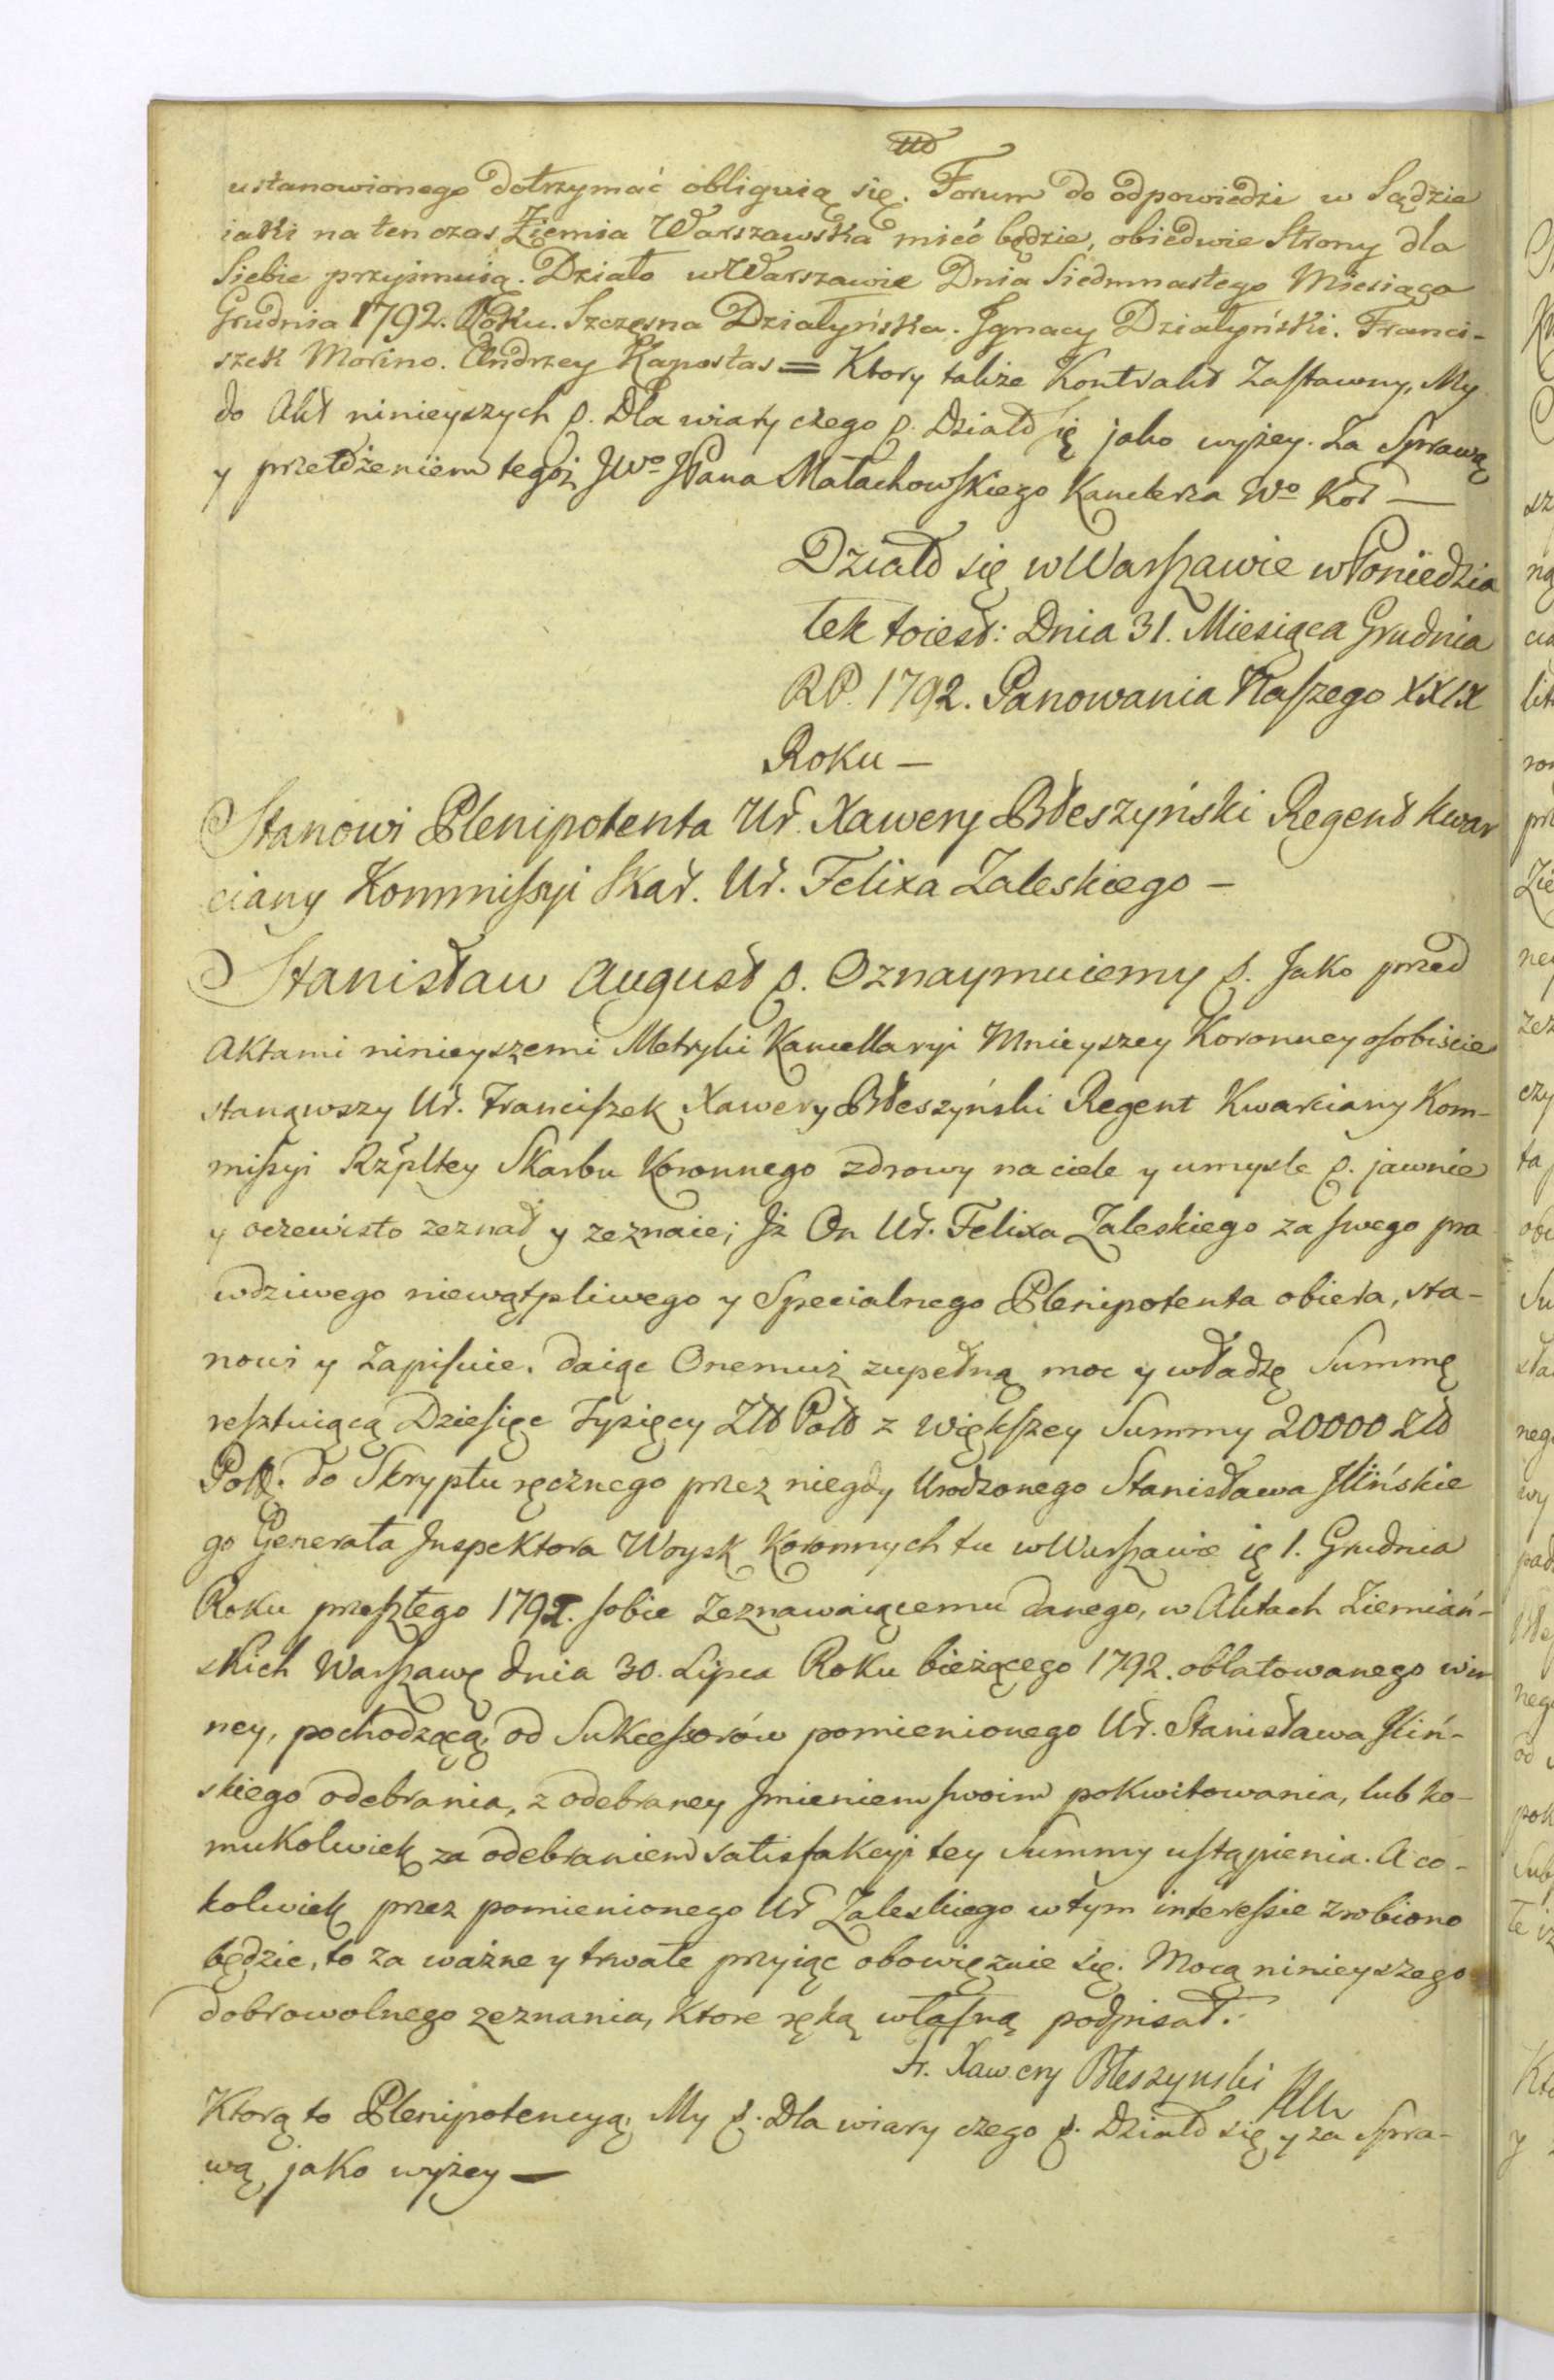 ustanowionego dotrzymać obliguią się. Forum do odpowiedzi w Sądzie
iaki na ten czas Ziemia Warszawska mieć będzie, obiedwie Strony dla
Siebie przyimuią. Działo w Warszawie Dnia Siedmnastego Miesiąca
Grudnia 1792. Roku. Szczęsna Działyńska. Ignacy Działyński. Franci-
szek Morino. Andrzey Kapostas = Ktory takze Kontrakt Zastawny, My
do Akt ninieyszych p. Dla wiary czego p. Działo ię jako wyżey. Za Sprawą
y przełożeniem tegoż JWo JPana Małachowskiego Kanclerza Wo Kor —
Działo się w Warszawie w Poniedzia
łek toiest: Dnia 31. Miesiąca Grudnia
RP. 1792. Panowania Naszego XXIX
Roku —
Stanowi Plenipotenta Ur. Xawery Błeszyński Regent kwar
ciany Kommissyi Skar. Ur. Felixa Zaleskiego —
Stanisław August p. Oznaymuiemy p. Jako przed
Aktami ninieyszemi Metryki Kancellaryi Mnieyszey Koronney osobiscie
stanąwszy Ur. Franciszek Xawery Błeszyński Regent Kwarciany Kom-
missyi Rzpltey Skarbu Koronnego zdrowy na ciele y umysle p. jawnie
y oczewisto zeznał y zeznaie; Iż On Ur. Felixa Zaleskiego za swego pra
wdziwego niewątpliwego y Specialnego Plenipotenta obiera, sta-
nowi y Zapisuie. daiąc Onemuż zupełną moc y władzę Summę
resztuiącą Dziesięc Tysięcy Złł Poll z większey Summy 20000 Złł
Poll. do Skryptu ręcznego przez niegdy Urodzonego Stanisława Ilińskie
go Generała Inspektora Woysk Koronnych tu w Warszawie ię 1. Grudnia
Roku przeszłego 1791. sobie Zeznawaiącemu danego, w Aktach Ziemiań-
skich Warszawę dnia 30. Lipca Roku bieżącego 1792. oblatowanego win
ney, pochodzącą, od Sukcessorów pomienionego Ur. Stanisława Iliń-
skiego odebrania, z odebraney Imieniem swoim pokwitowania, lub ko-
mukolwiek za odebraniem satisfakcyi tey Summy ustąpienia. A co-
kolwiek przez pomienionego Ur Zaleskiego w tym interessie zrobiono
będzie, to za ważne y trwałe przyiąc obowięzuie się. Mocą ninieyszego
dobrowolnego zeznania, ktore ręką własną podpisał.
Fr. Xawery Błeszynski
Ktorą to Plenipotencyą, My p. Dla wiary czego p. Działo się y za Spra-
wą jako wyżey —